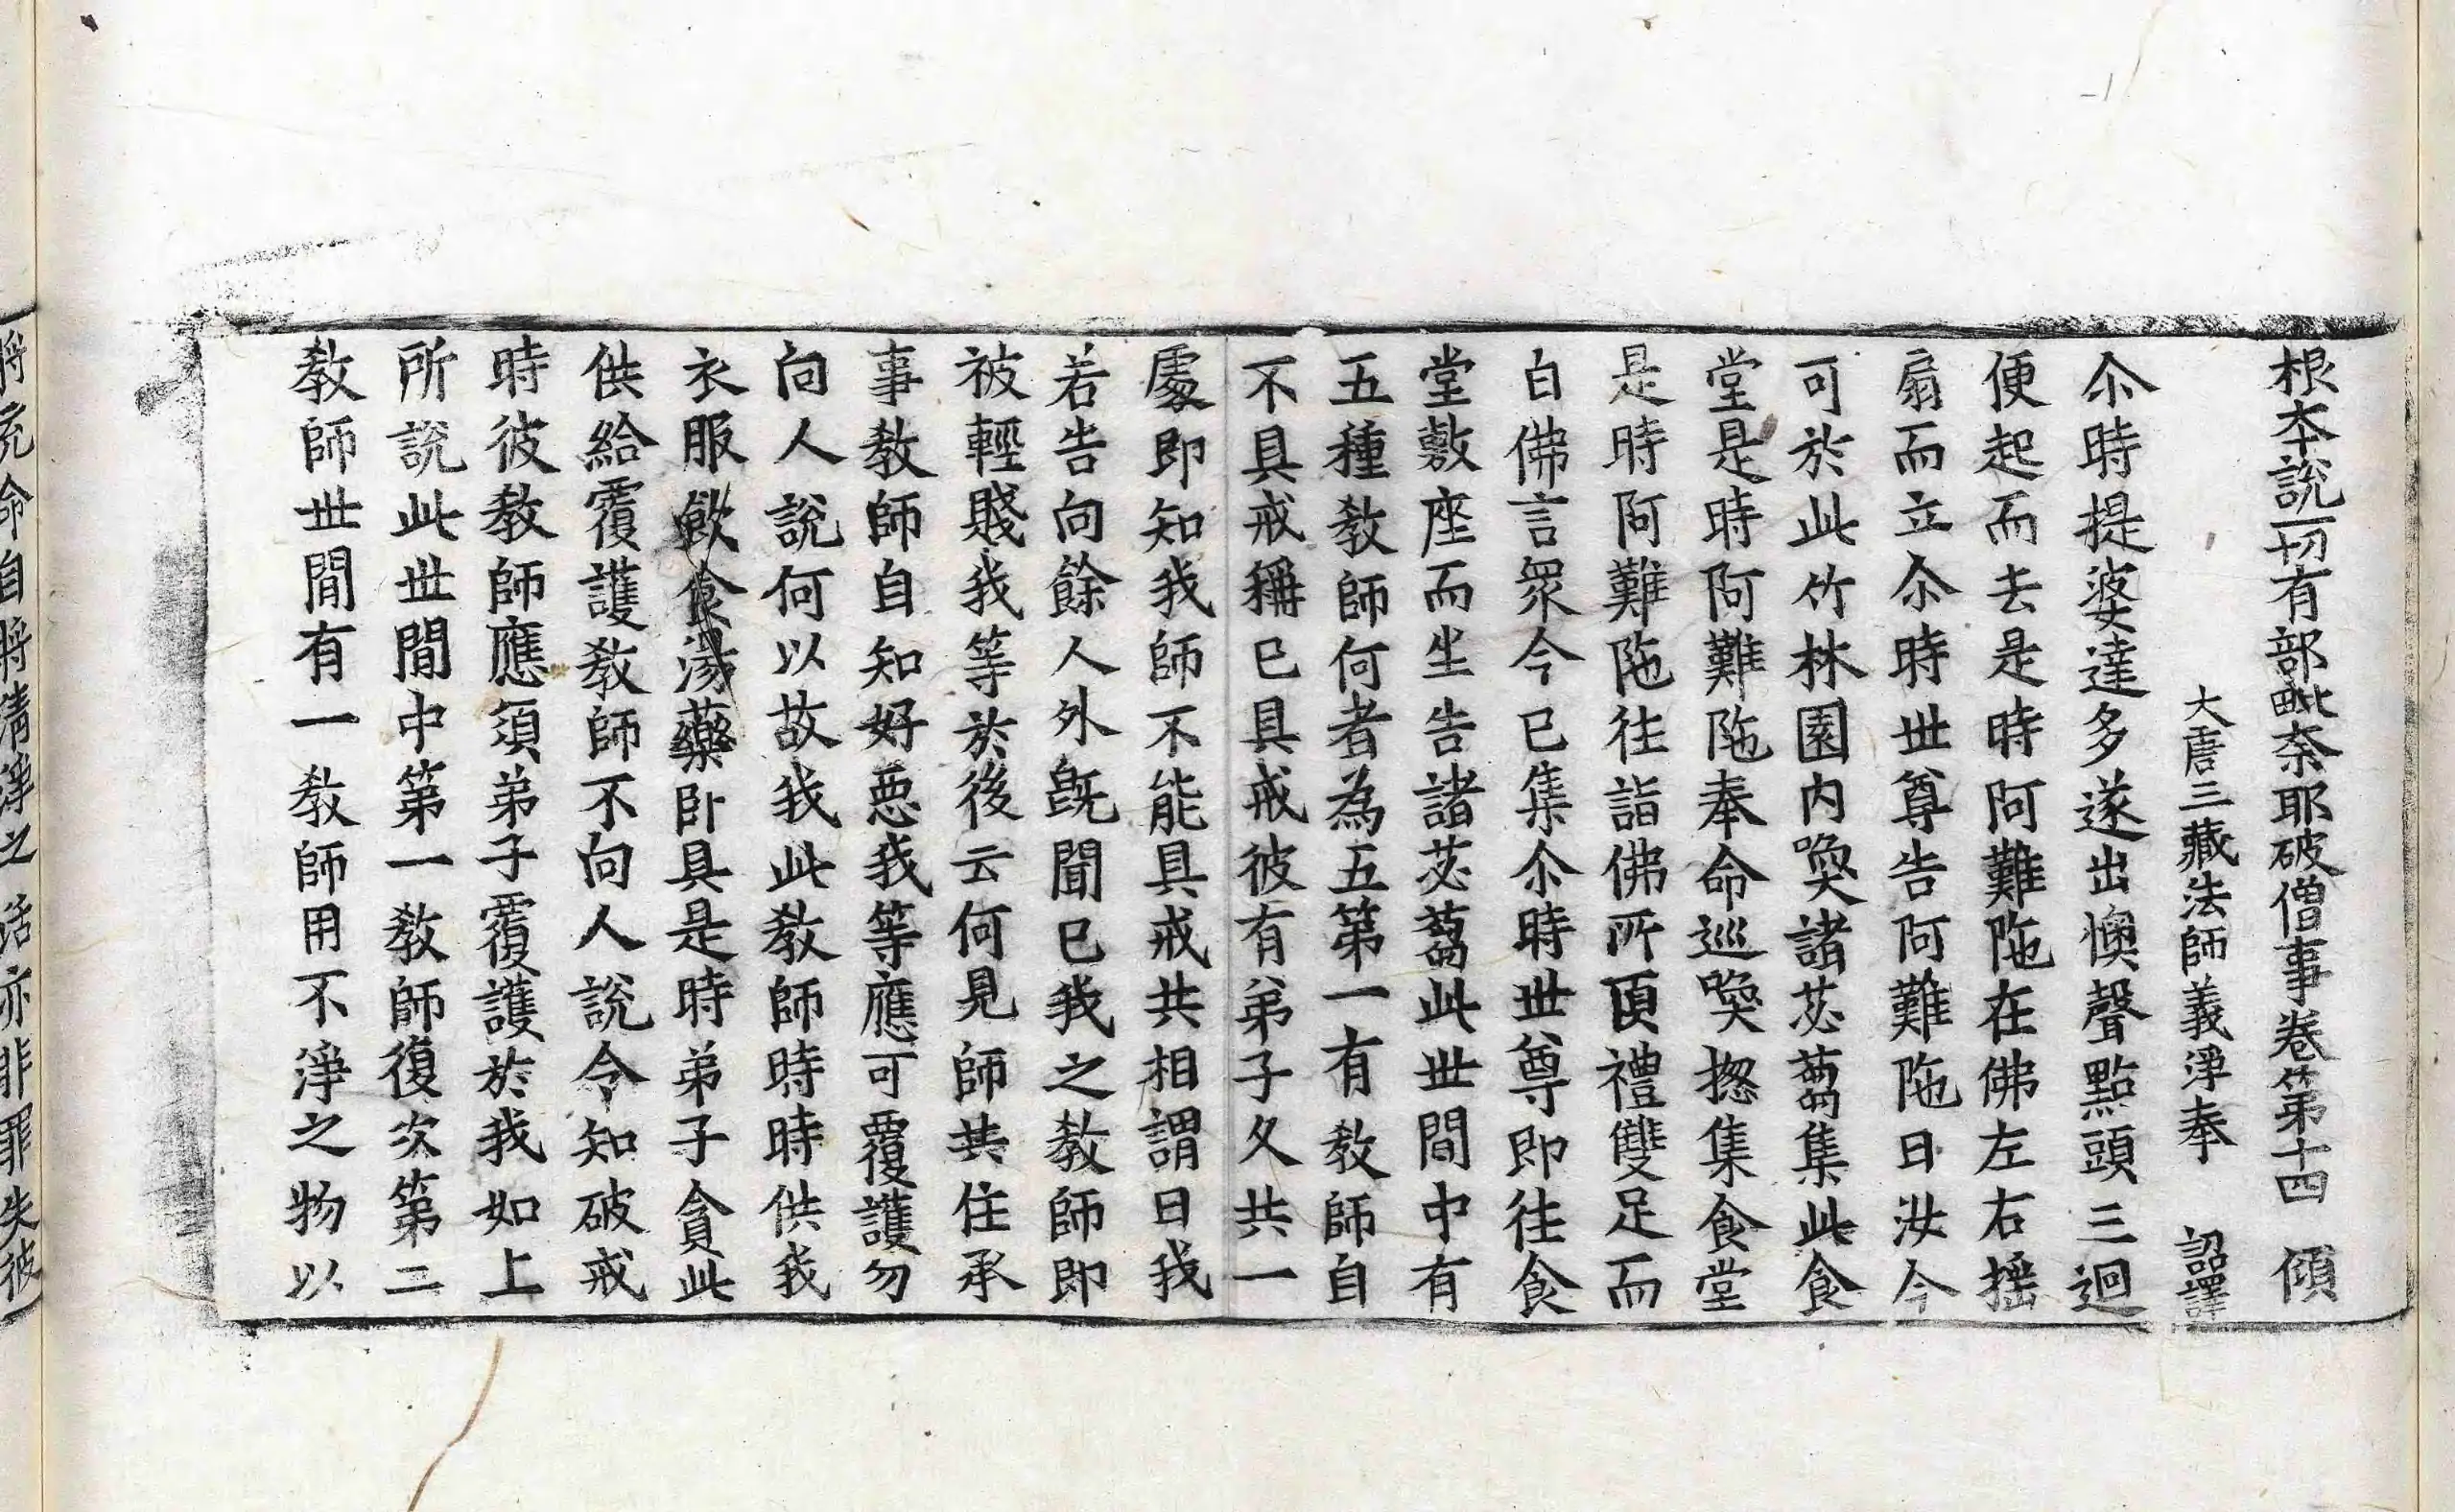 根本說一切有部毗奈耶破僧事卷第十四　傾
大唐三藏法師義淨奉　詔譯
尒時提婆達多遂出懊聲點頭三迴
便起而去是時阿難陁在佛左右搖
扇而立尒時世尊告阿難陁曰汝今
可於此竹林園內喚諸苾蒭集此食
堂是時阿難陁奉命巡喚揔集食堂
是時阿難陁往詣佛所頂禮雙足而
白佛言眾今已集尒時世尊即往食
堂敷座而坐告諸苾蒭此世間中有
五種教師何者為五第一有教師自
不具戒稱已具戒彼有弟子久共一
處即知我師不能具戒共相謂曰我
若告向餘人外旣聞已我之教師即
被輕賤我等於後云何見師共住承
事教師自知好惡我等應可覆護勿
向人說何以故我此教師時時供我
衣服飲食湯藥卧具是時弟子貪此
供給覆護教師不向人說令知破戒
時彼教師應須弟子覆護於我如上
所說此世間中第一教師復次第二
教師世間有一教師用不淨之物以